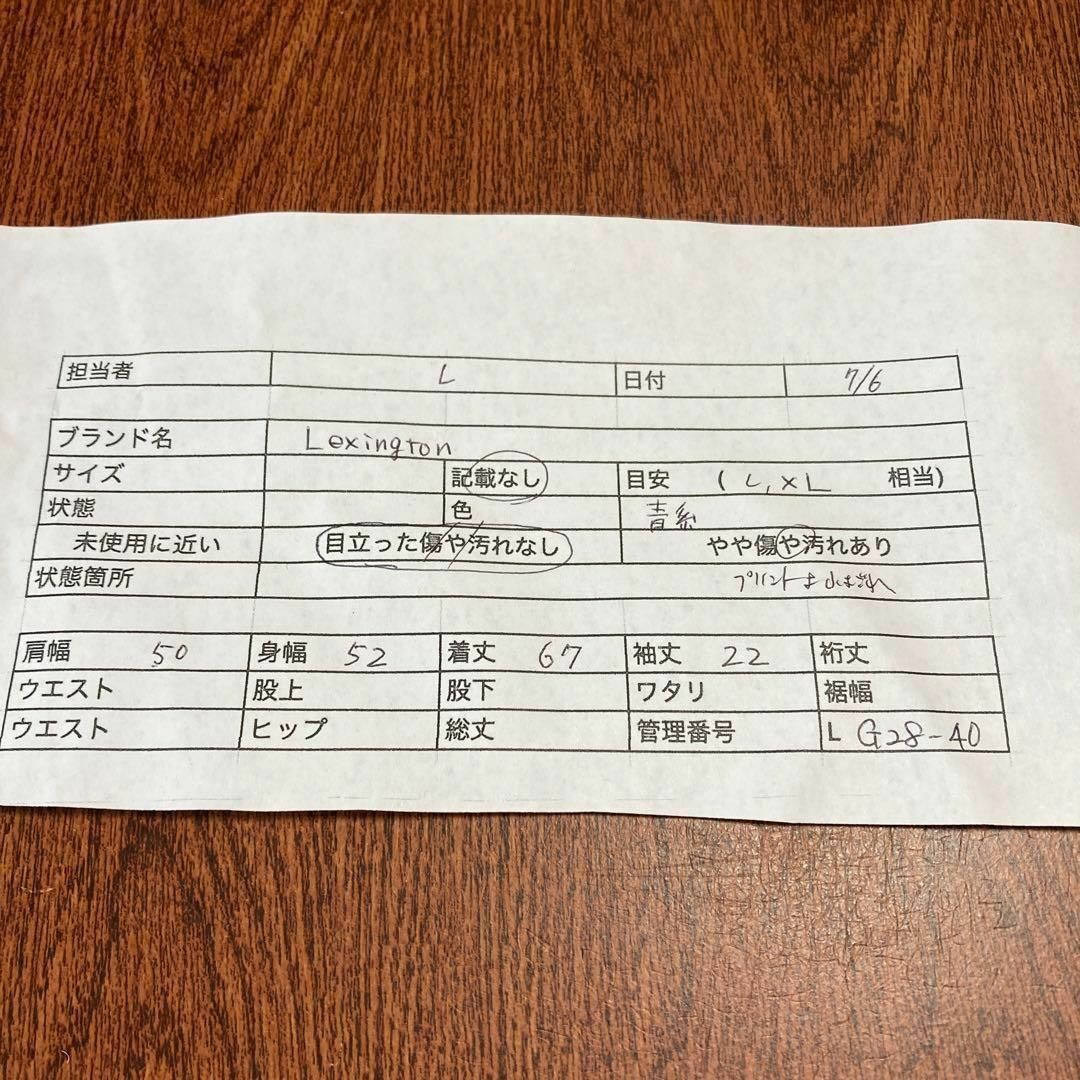 担当者 L 日付 7/6
ブランド名 Lexington
サイズ 記載なし 目安 ( L, XL 相当)
状態 色 青系
未使用に近い 目立った傷や汚れなし やや傷や汚れあり
状態箇所 プリント
肩幅 50 身幅 52 着丈 67 袖丈 22 裄丈
ウエスト 股上 股下 ワタリ 裾幅
ウエスト ヒップ 総丈 管理番号 L G28-40